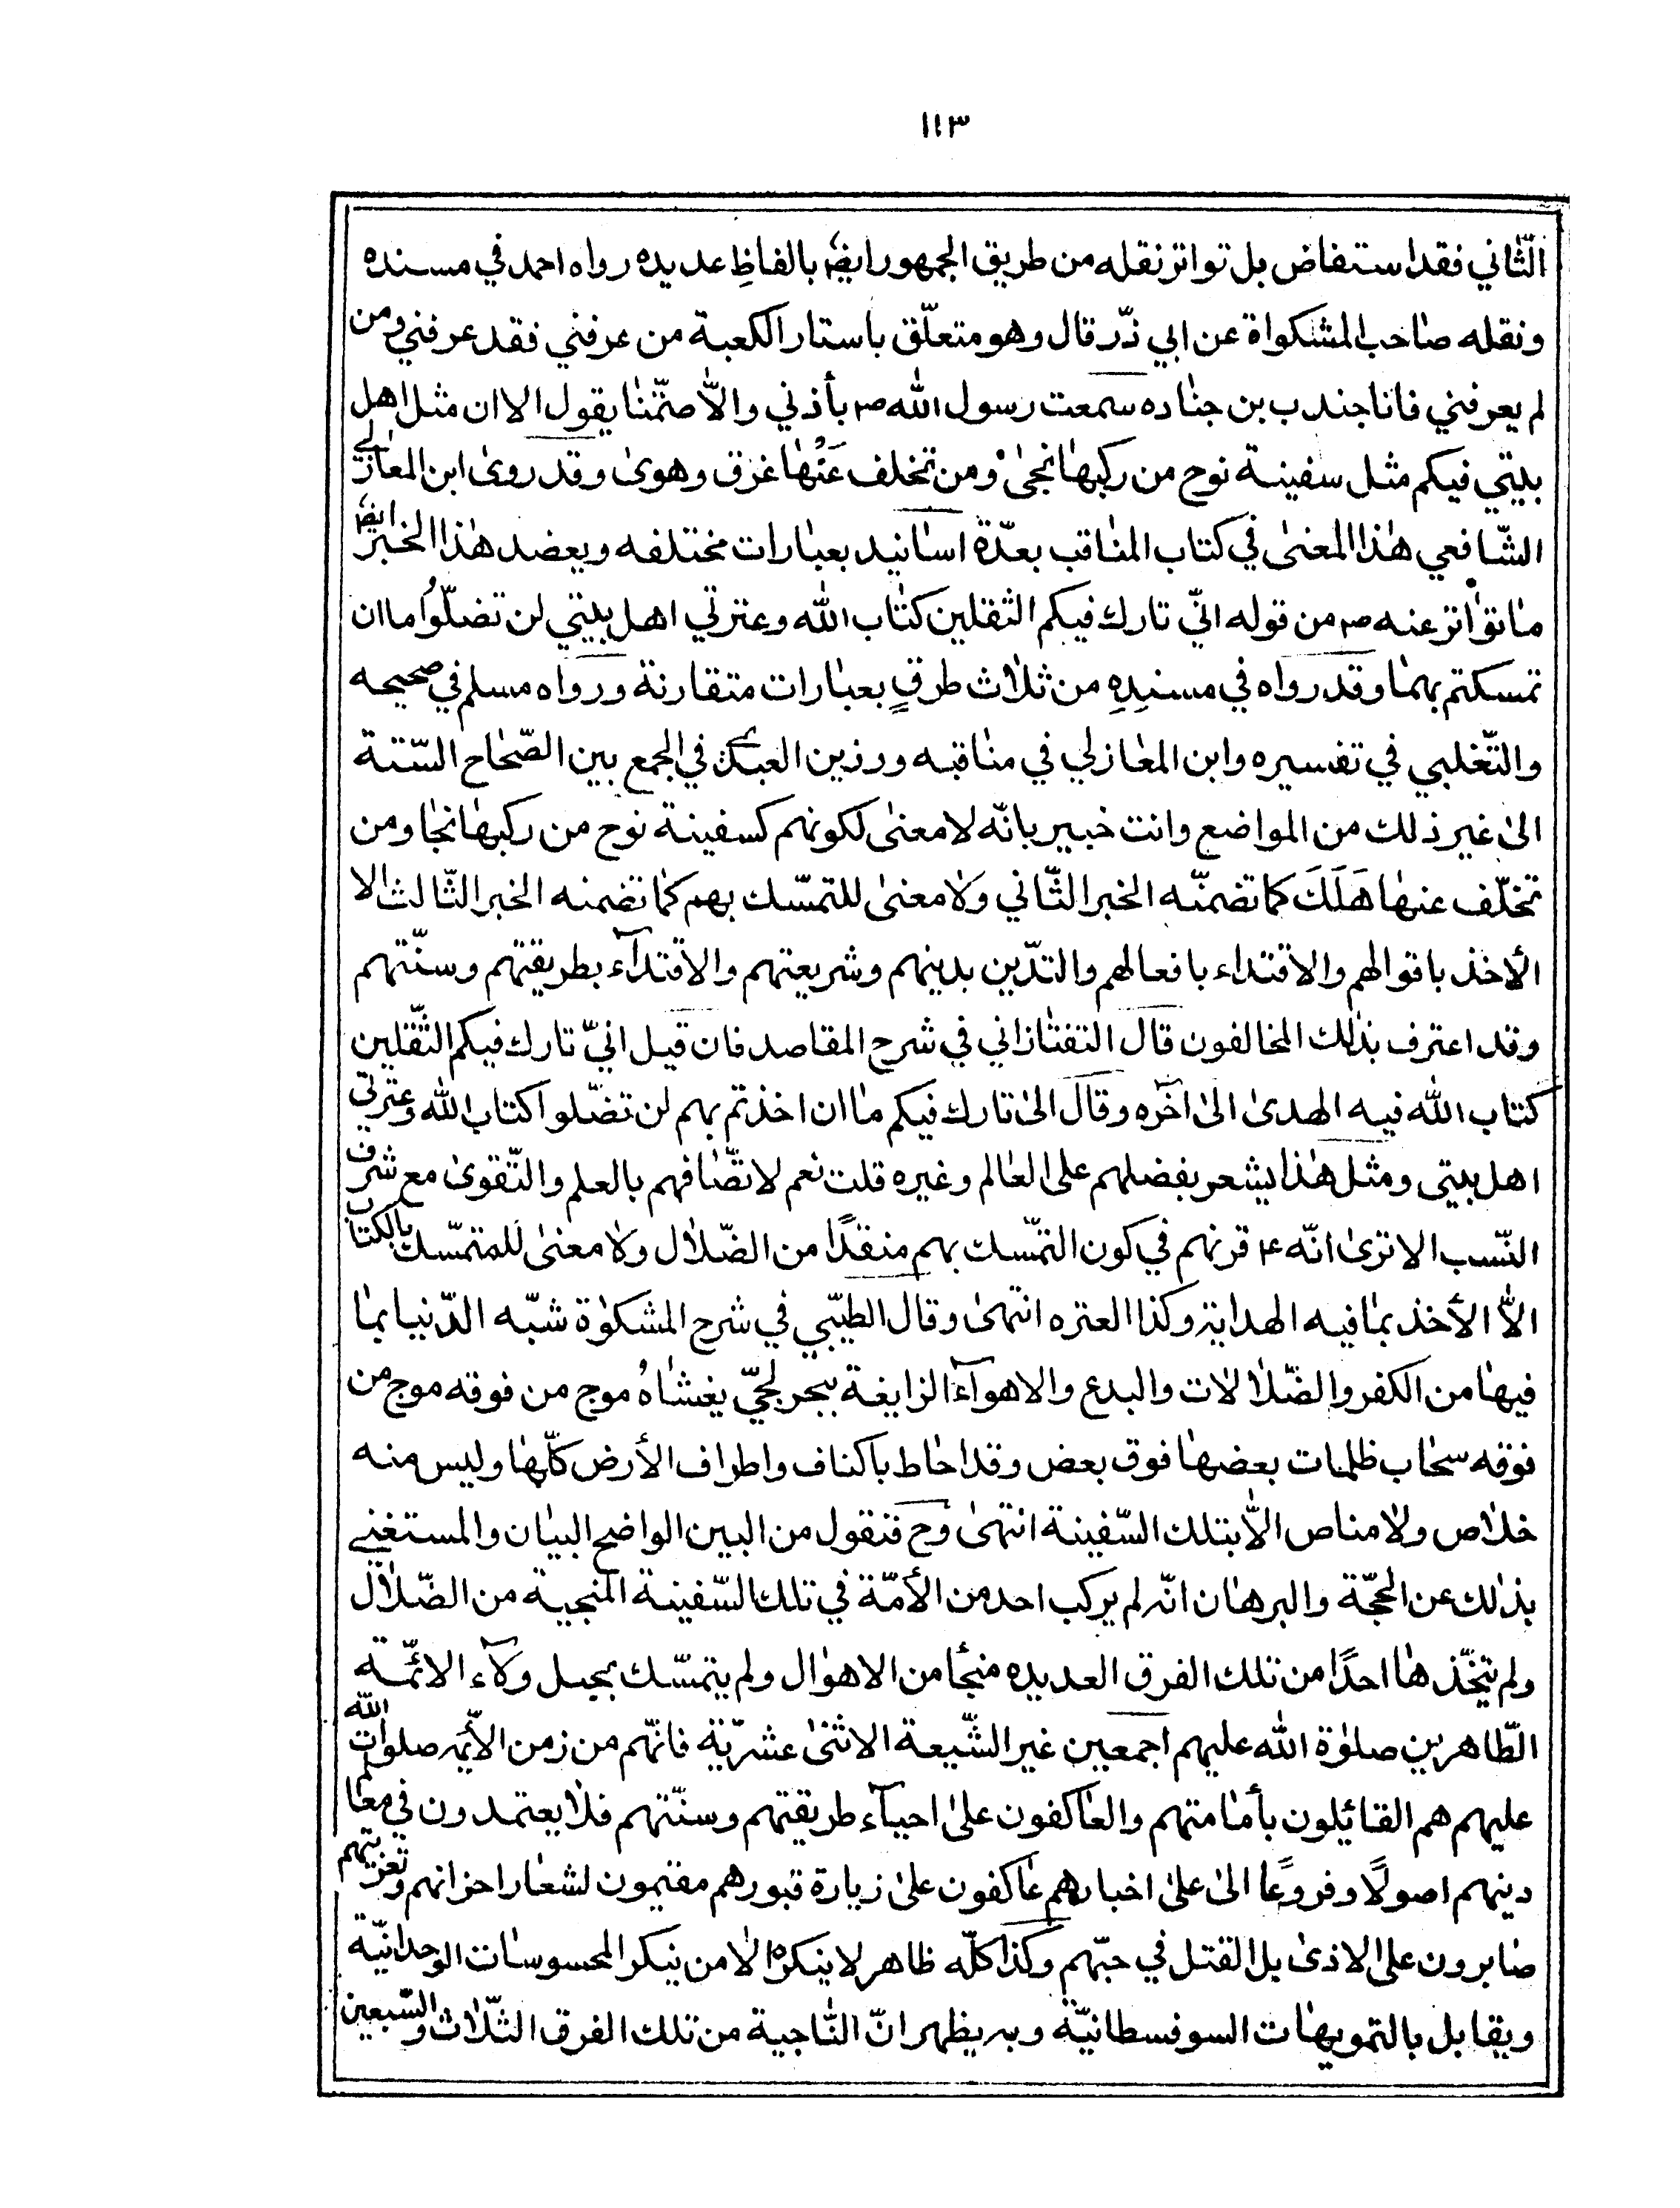 ١١٣
الثّاني فقد استفاض بل تواتر نقله من طريق الجمهور ايضًا بالفاظٍ عديده رواه احمد في مسنده
ونقله صاحب المشكواة عن ابي ذّر قال وهو متعلّق باستار الكعبة من عرفني فقد عرفني ومن
لم يعرفني فانا جندب بن جناده سمعت رسول الله ص بأذني والاّ صمّتنا يقول الا ان مثل اهل
بيتي فيكم مثل سفينة نوح من ركبها نجىٰ ومن تخلف عَنْها غرق وهوىٰ وقد روىٰ ابن المغازلي
الشّافعي هٰذا المعنىٰ في كتاب المناقب بعدّة اسانيد بعبارات مختلفه ويعضد هٰذا الخبر ايضًا
ما تواتر عنه ص من قوله انّي تارك فيكم الثقلين كتاب الله وعترتي اهل بيتي لن تضلّوُا ما ان
تمسكتم بهما وقد رواه في مسنِدِهِ من ثلاث طرقٍ بعبارات متقارنة ورواه مسلم في صحيحه
والثّغلبي في تفسيره وابن المغازلي في مناقبه ورزين العبدي في الجمع بين الصّحاح السّتة
الىٰ غير ذلك من المواضع وانت خبير بانّه لا معنىٰ لكونهم كسفينة نوح من ركبها نجا ومن
تخلّف عنها هَلَكَ كما تضمنّه الخبر الثّاني ولا معنىٰ للتمسّك بهم كما تضمنه الخبر الثّالث الا
الأخذ باقوالهم والاقتداء بافعالهم والتدّين بدينهم وشريعتهم والاقتدآء بطريقتهم وسنّتهم
وقد اعترف بذٰلك المخالفون قال التفتازاني في شرح المقاصد فان قيل انيّ تارك فيكم الثّقلين
كتاب الله فيه الهدىٰ الىٰ آخره وقال الىٰ تارك فيكم ما ان اخذتم بهم لن تضلّوا كتاب الله وعترتي
اهل بيتى ومثل هٰذا يشعر بفضلهم على العٰالم وغيره قلت نعم لاتّصافهم بالعلم والتّقوىٰ مع شرف
النّسب الا ترىٰ انّه ع قرنهم في كون التمّسك بهم منقذًا من الضّلال ولا معنىٰ للمتمسّك بالكتاب
الاّ الأخذ بما فيه الهداية وكذا العتره انتهىٰ وقال الطيّبي في شرح المشكوٰة شبّه الدّنيا بما
فيها من الكفر والضّلالات والبدع والاهوآء الزايغة ببحر لجيّ يغشاهُ موج من فوقه موج من
فوقه سحاب ظلمات بعضها فوق بعض وقد احاط باكناف واطراف الأرض كلّها وليس منه
خلاص ولا مناص الاّ بتلك السّفينة انتهىٰ وح فنقول من البين الواضح البيان والمستغني
بذٰلك عن الحجّة والبرهان انّه لم يركب احد من الأمّة في تلك السّفينة المنجية من الضّلال
ولم يتخّذها احدًا من تلك الفرق العديده منجأ من الاهوال ولم يتمسّك بحبل ولآء الائمّة
الطّاهرين صلوٰة الله عليهم اجمعين غير الشّيعة الاثنىٰ عشريّة فانّهم من زمن الأئمّه صلوات الله
عليهم هم القائيلون بأمامتهم والعاكفون علىٰ احيآء طريقتهم وسنّتهم فلا يعتمدون في معالم
دينهم اصولًا وفروعًا الىٰ علىٰ اخبارهم عاكفون علىٰ زيارة قبورهم مقتمون لشعار احزانهم وتعزيتهم
صابرون على الاذىٰ بل القتل في حبّهم وكذا كلّه ظاهر لا ينكره الا من ينكر المحسوسات الوحدانيّة
ويقابل بالتمويهات السوفسطانيّة وبه يظهر انّ النّاجية من تلك الفرق الثّلاث والسّبعين